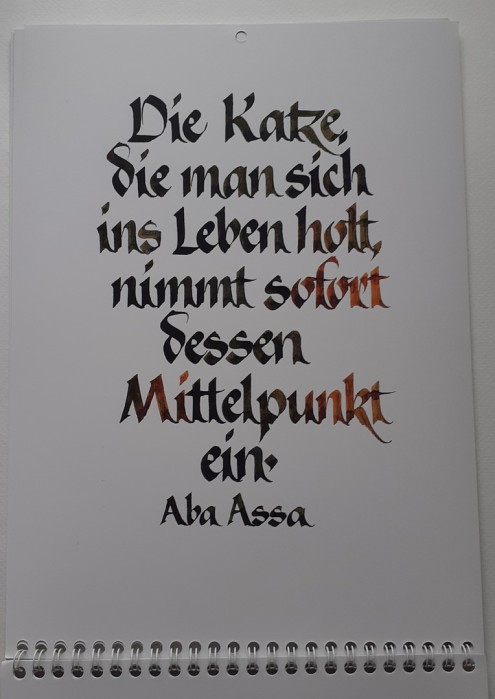 Die Katze,
die man sich
ins Leben holt,
nimmt sofort
dessen
Mittelpunkt
ein.
Aba Assa